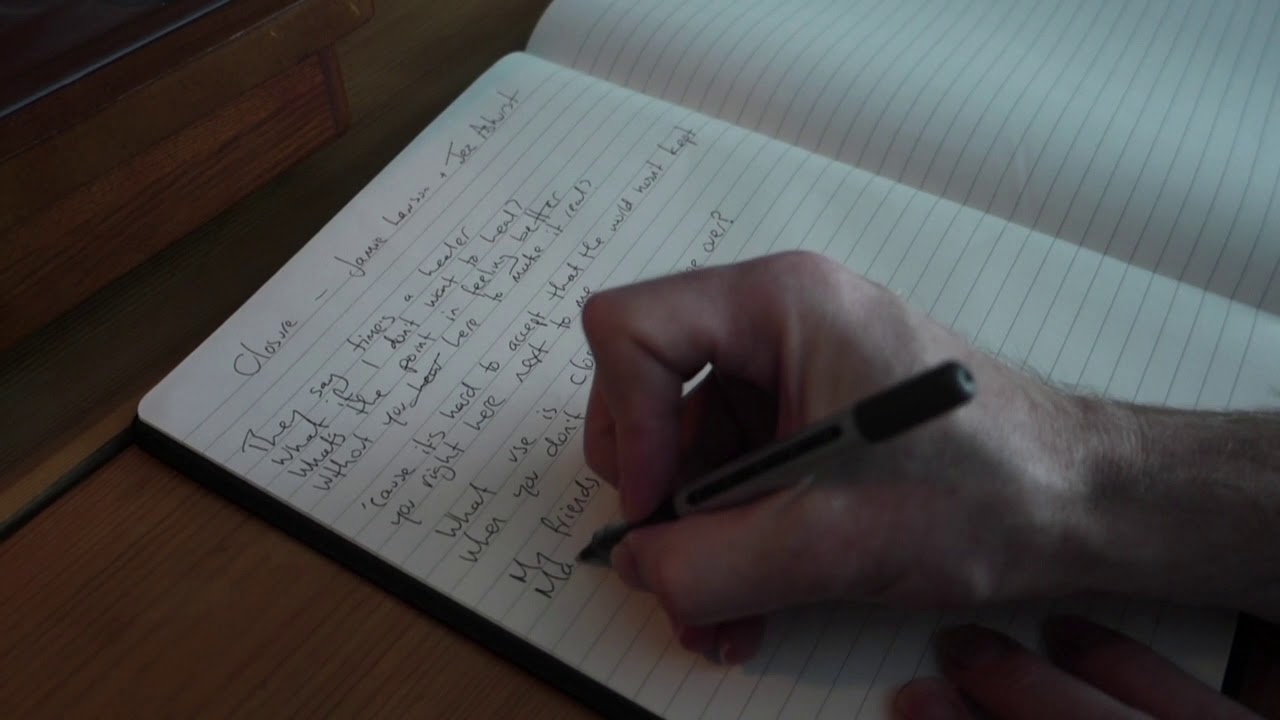 Closure – Jamie Lawson + Jez Ashurst
They say time's a healer
What if I don't want to heal?
What's the point in feeling better
Without you here to make it real?
'Cause it's hard to accept that the world hasn't kept
you right here next to me
What use is
When you don't over?
My friends
Ma